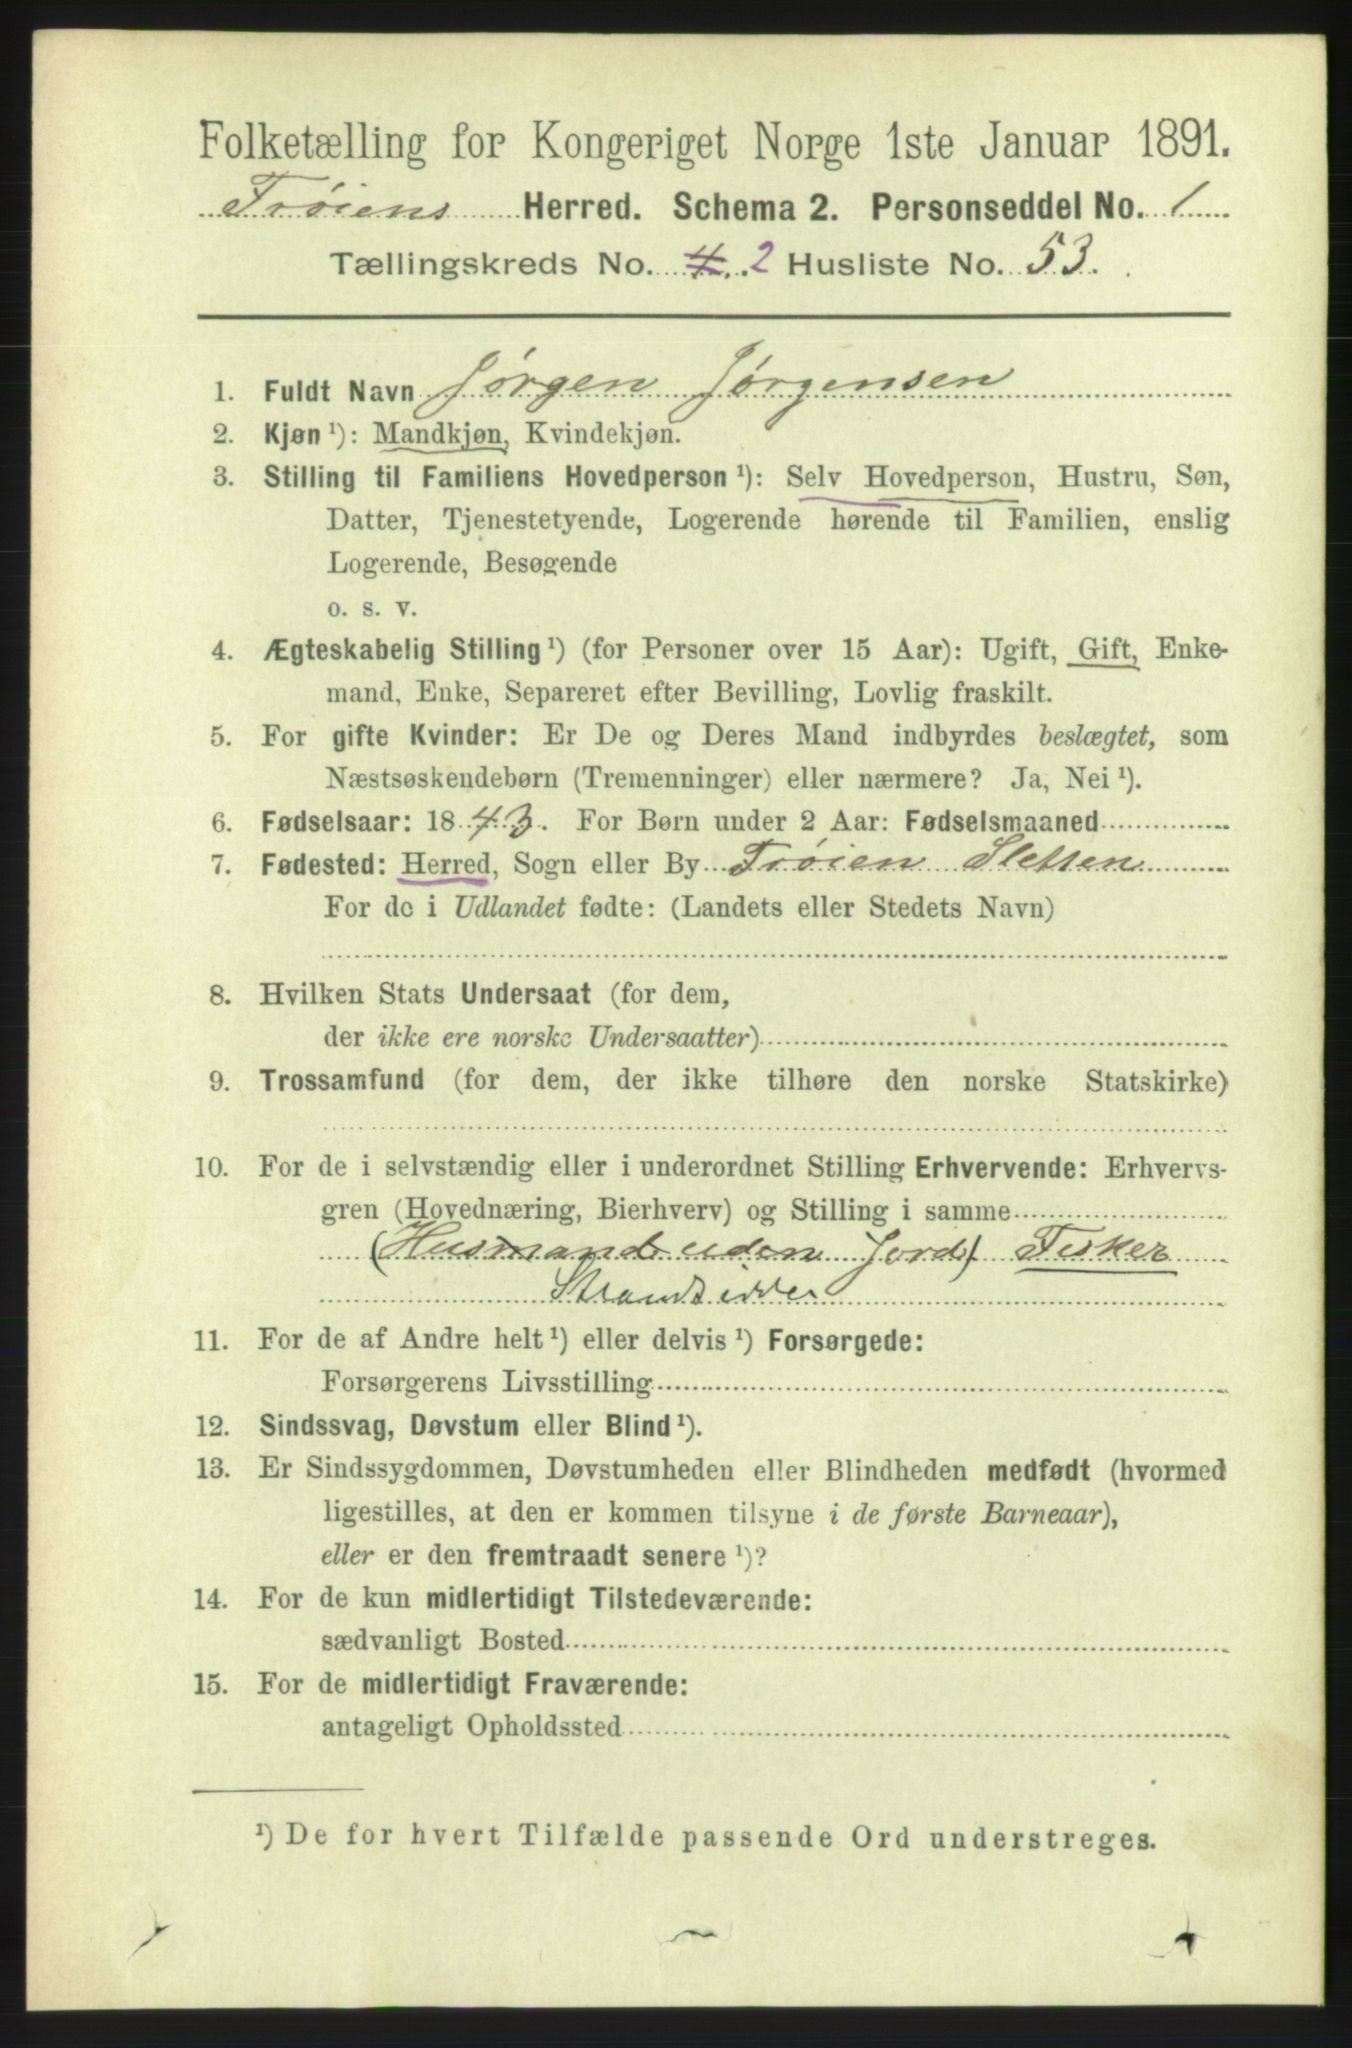 Folketælling for Kongeriget Norge 1ste Januar 1891.
Frøiens Herred. Schema 2. Personseddel No. 1
Tællingskreds No. 4. 2 Husliste No. 53.
1. Fuldt Navn Jørgen Jørgensen
2. Kjøn ¹): Mandkjøn, Kvindekjøn.
3. Stilling til Familiens Hovedperson ¹): Selv Hovedperson, Hustru, Søn,
Datter, Tjenestetyende, Logerende hørende til Familien, enslig
Logerende, Besøgende
o. s. v.
4. Ægteskabelig Stilling ¹) (for Personer over 15 Aar): Ugift, Gift, Enke-
mand, Enke, Separeret efter Bevilling, Lovlig fraskilt.
5. For gifte Kvinder: Er De og Deres Mand indbyrdes beslægtet, som
Næstsøskendebørn (Tremenninger) eller nærmere? Ja, Nei ¹).
6. Fødselsaar: 1843. For Børn under 2 Aar: Fødselsmaaned
7. Fødested: Herred, Sogn eller By Frøien Sletten
For de i Udlandet fødte: (Landets eller Stedets Navn)
8. Hvilken Stats Undersaat (for dem,
der ikke ere norske Undersaatter)
9. Trossamfund (for dem, der ikke tilhøre den norske Statskirke)
10. For de i selvstændig eller i underordnet Stilling Erhvervende: Erhvervs-
gren (Hovednæring, Bierhverv) og Stilling i samme
(Husmand uden Jord). Fisker
Strandsidder
11. For de af Andre helt ¹) eller delvis ¹) Forsørgede:
Forsørgerens Livsstilling
12. Sindssvag, Døvstum eller Blind ¹).
13. Er Sindssygdommen, Døvstumheden eller Blindheden medfødt (hvormed
ligestilles, at den er kommen tilsyne i de første Barneaar),
eller er den fremtraadt senere ¹)?
14. For de kun midlertidigt Tilstedeværende:
sædvanligt Bosted
15. For de midlertidigt Fraværende:
antageligt Opholdssted
¹) De for hvert Tilfælde passende Ord understreges.